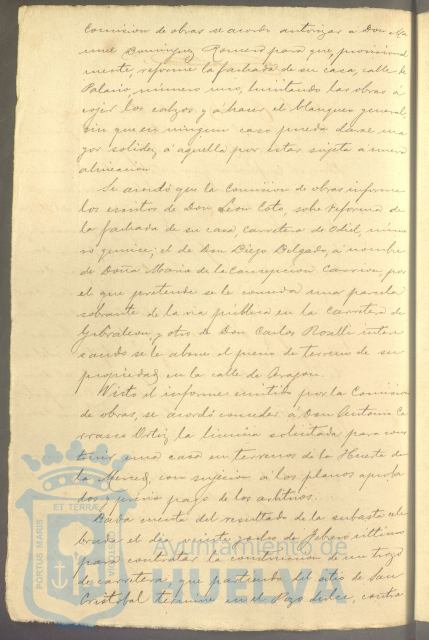 Comision de obras se acordó autorizar á Don Ma
nuel Dominguez Romero para que, provisional
mente, reforme la fachada de su casa, calle de
Palacio, número uno, limitando las obras á
cojer los calzos y á hacer el blanqueo general,
sin que en ningun caso pueda darse ma
yor solidez á aquella por estar sujeta á nueva
alineacion.
Se acordó que la Comision de obras informe
los escritos de Don Leon Coto, sobre reforma de
la fachada de su casa, Carretera de Odiel, núme
ro quince; el de Don Diego Delgado, á nombre
de Doña Maria de la Concepcion Carrion, por
el que pretende se le conceda una parcela
sobrante de la via pública en la Carretera de
Gibraleon, y otro de Don Carlos Roselli intere
sando se le abone el precio de terreno de su
propiedad en la calle de Aragon.
Visto el informe emitido por la Comision
de obras, se acordó conceder á Don Antonio Ca
rrasco Ortiz la licencia solicitada para cons
truir una casa en terrenos de la Huerta de
la Merced, con sujecion á los planos aproba
dos y previo pago de los arbitrios.
Dada cuenta del resultado de la subasta cele
brada el dia veinte y ocho de Febrero último
para contratar la construccion de un trozo
de carretera, que partiendo del sitio de San
Cristobal termine en el Pozo dulce, contra
PORTUS MARIS
ET TERRAE
Ayuntamiento de
HUELVA